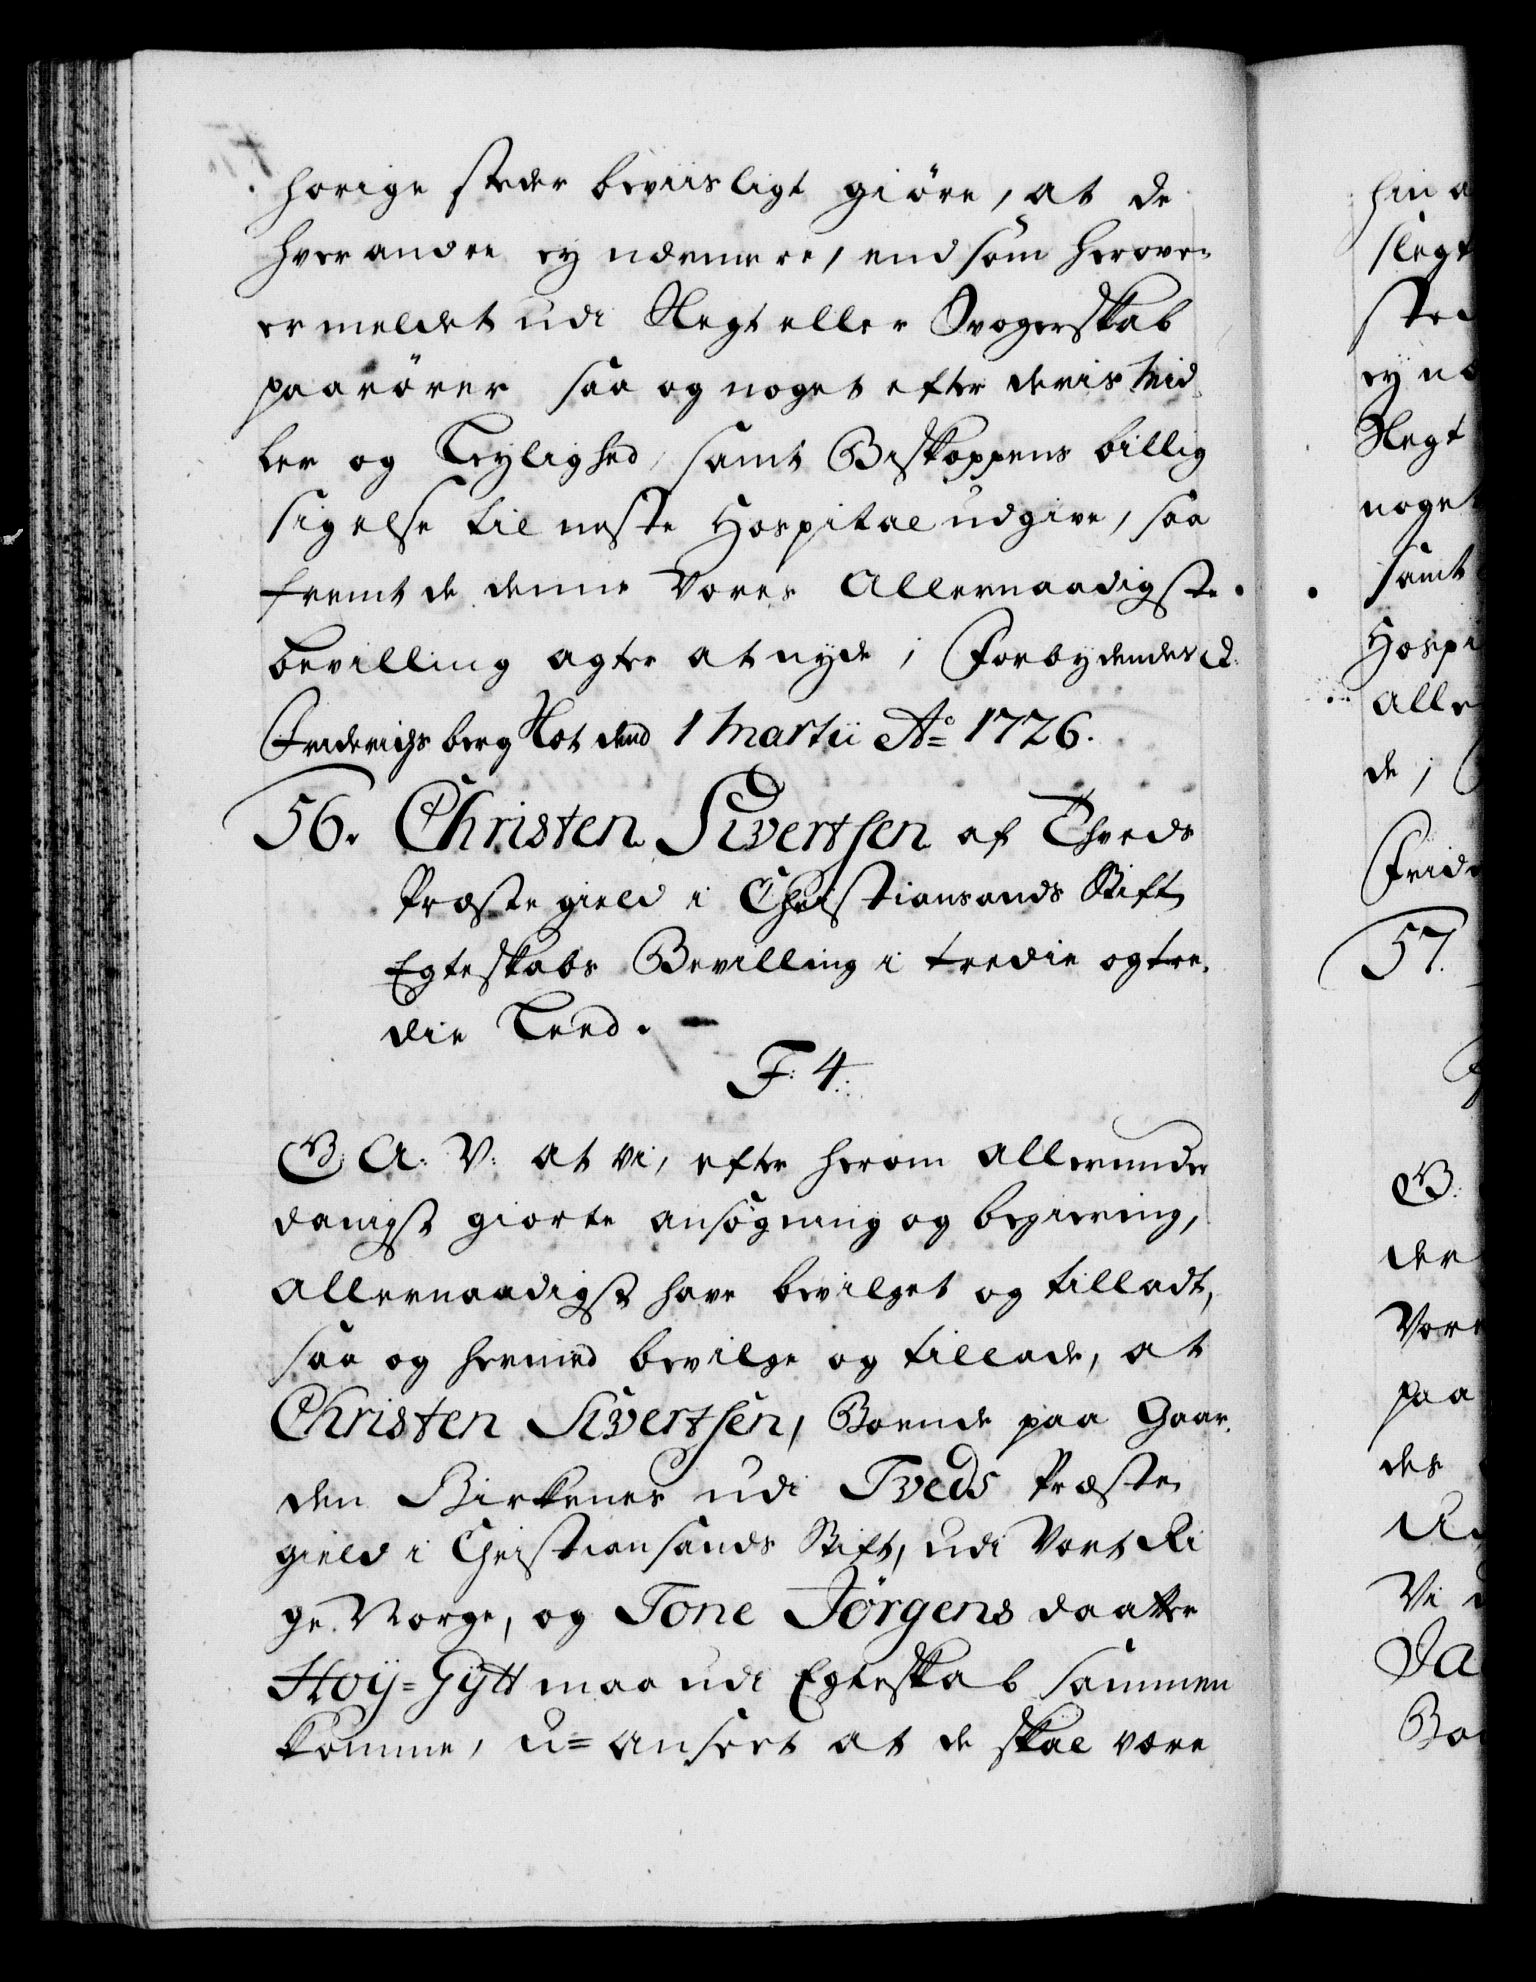 horige steder beviisligt giöre, at de
hver andre ey nærmere, end som herover
er meldet udi Slegt eller Svogerskab
paarörer saa og noget efter deris Mid-
ler og Leylighed, samt Biskoppens billig
sigelse til neste Hospital udgive, saa
fremt de denne Vores Allernaadigste
bevilling agter at nyde; Forbydendes &.
Friderichsberg Slot dend 1 Martii A° 1726.
56. Christen Sivertsen af Thveds
Præstegield i Christiansands Stift
Egteskabs Bevilling i tredie og tre-
die Leed.
F: 4:
G: A: V: at vi, efter herom allerunder
danigst giorte ansögning og begiering,
allernaadigst have bevilget og tilladt,
saa og hermed bevilge og tillade, at
Christen Sivertsen, Boende paa Gaar-
den Birkenes udi Tveds Præste
gield i Christiansands Stift, udi Vort Ri
ge Norge, og Tone Jörgens daatter
Hoÿ=Gÿtt maa udi Egteskab sammen
komme, u=anseet at de skal være
hin a
slegt
sted
ey næ
Slegt
noget
samt
Hospi
Alle
de; 
Frid
57.
G:
der
Vor
paa
des
Vi
Ja
Bo